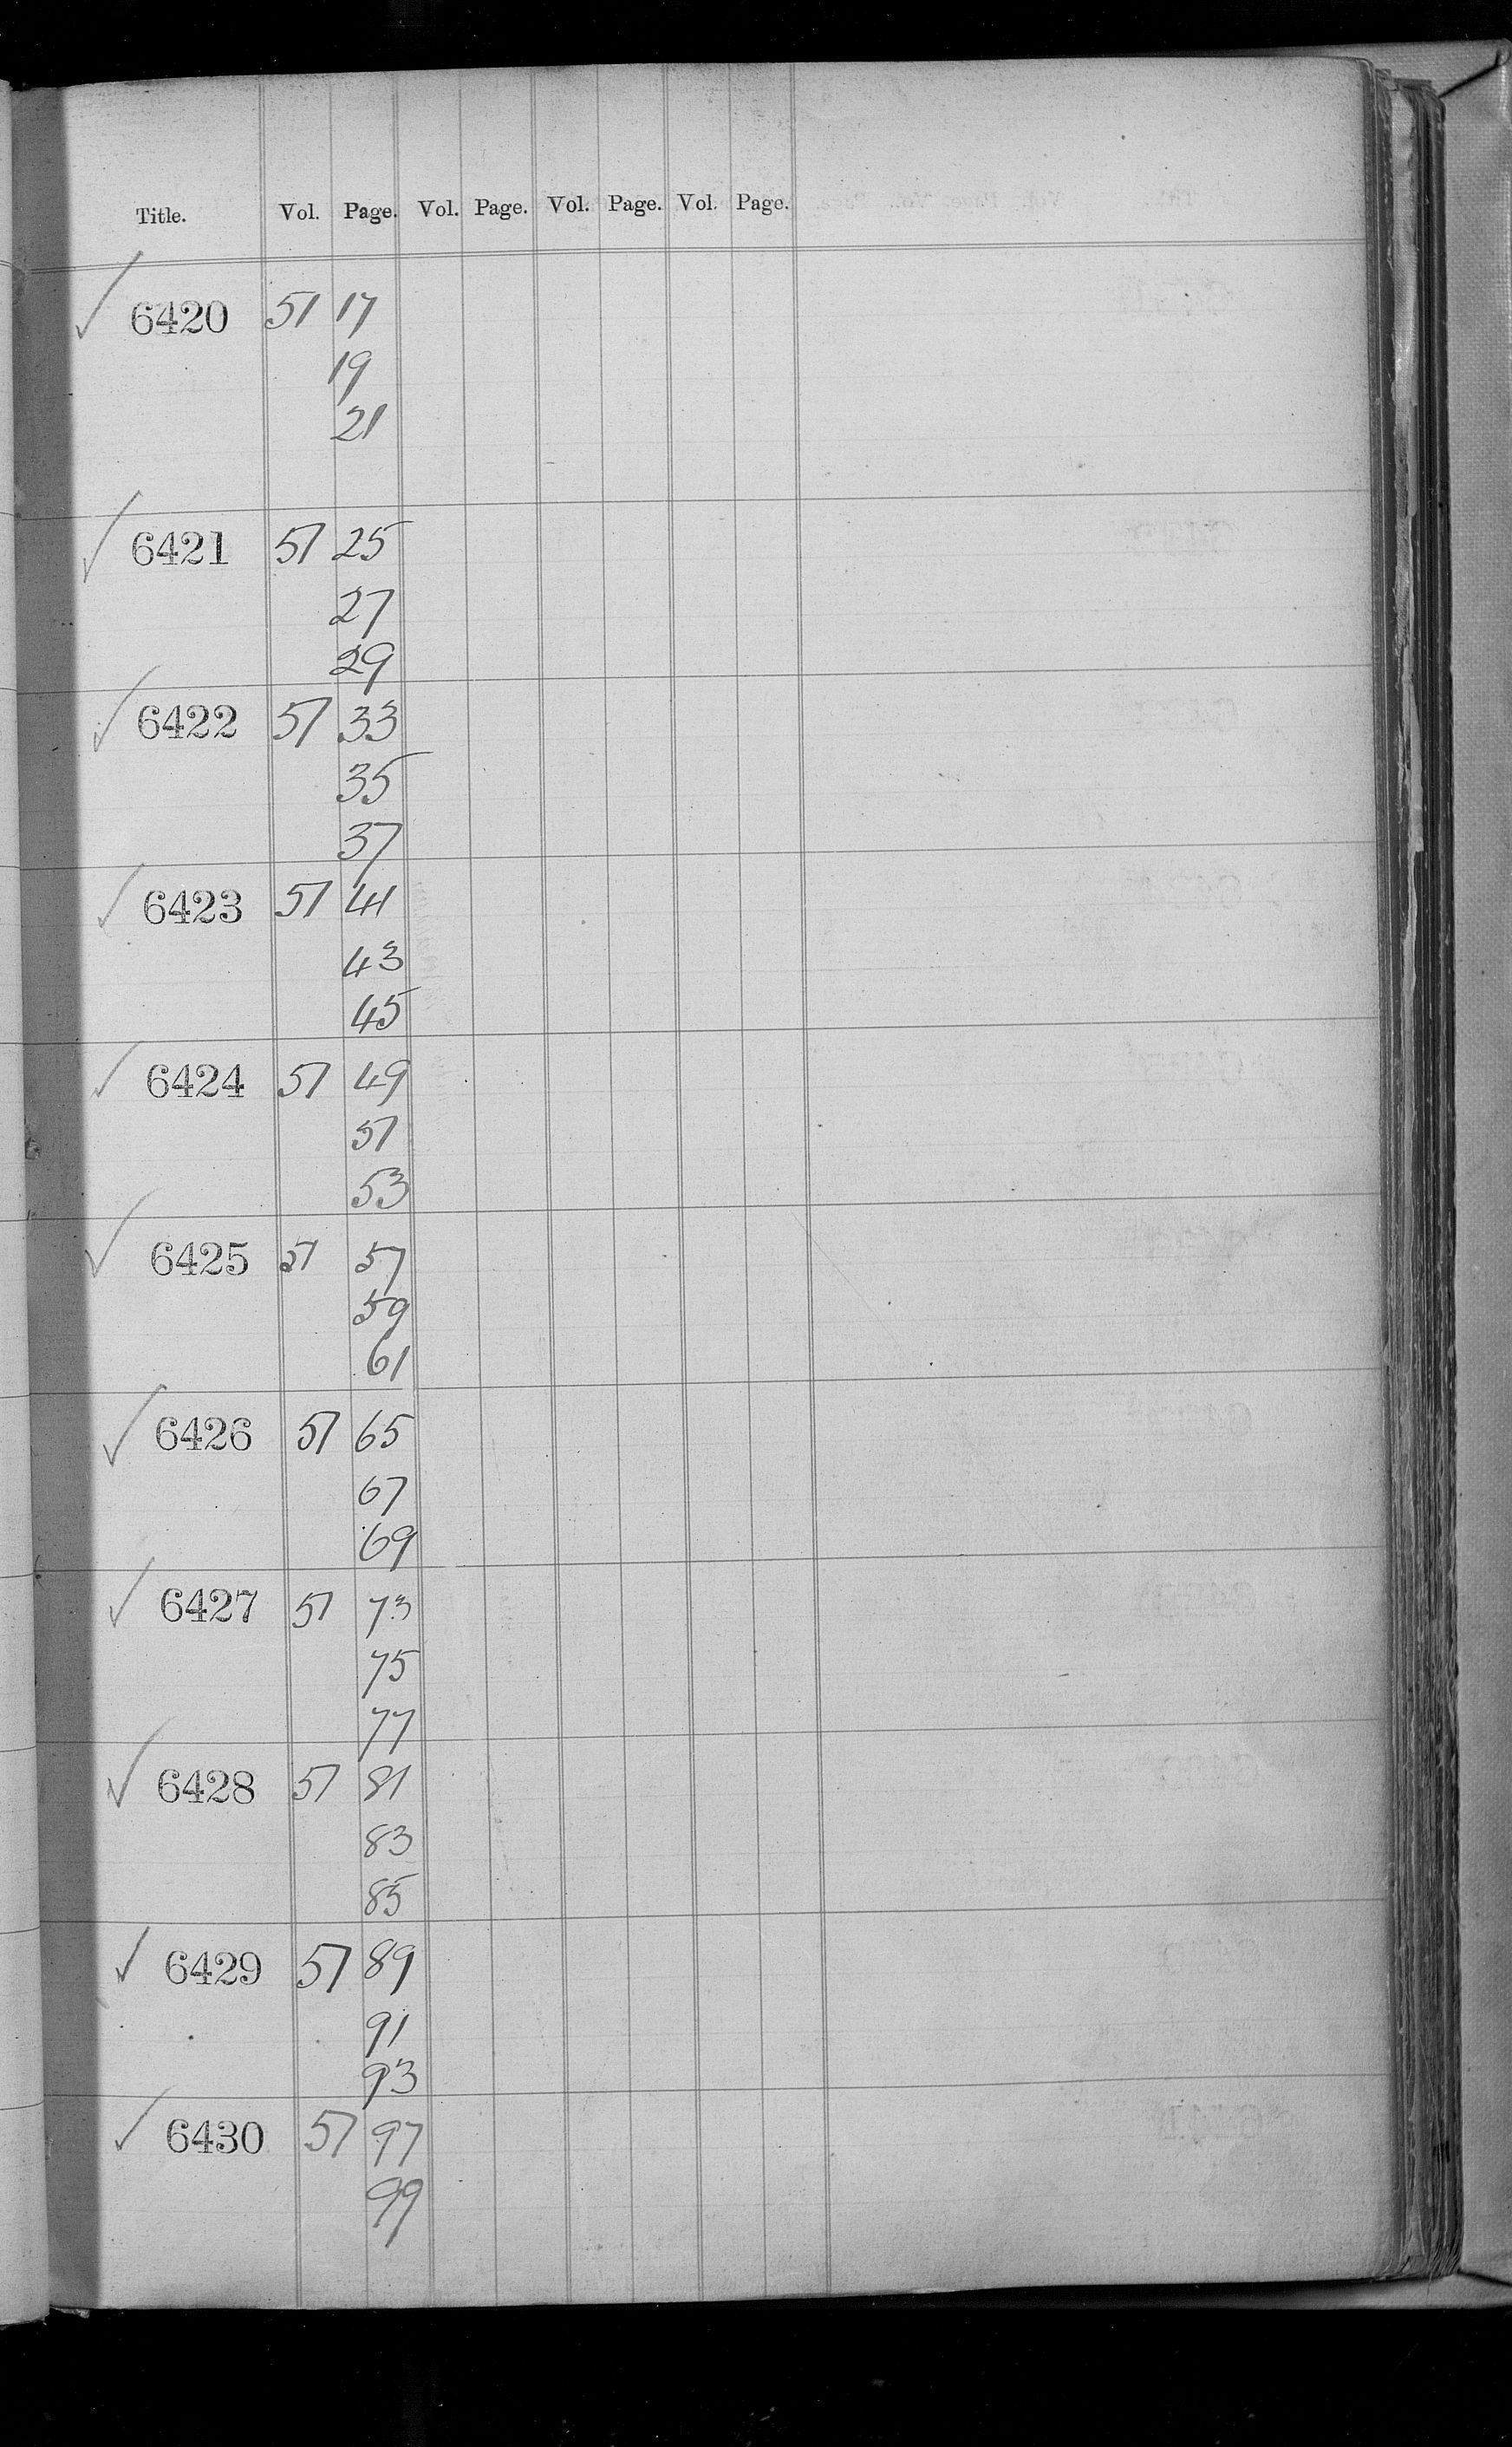 Title. Vol. Page. Vol. Page. Vol. Page. Vol. Page.
✓ 6420 51 17
19
21
✓ 6421 51 25
27
29
✓ 6422 51 33
35
37
✓ 6423 51 41
43
45
✓ 6424 51 49
51
53
✓ 6425 51 57
59
61
✓ 6426 51 65
67
69
✓ 6427 51 73
75
77
✓ 6428 51 81
83
85
✓ 6429 51 89
91
93
✓ 6430 51 97
99